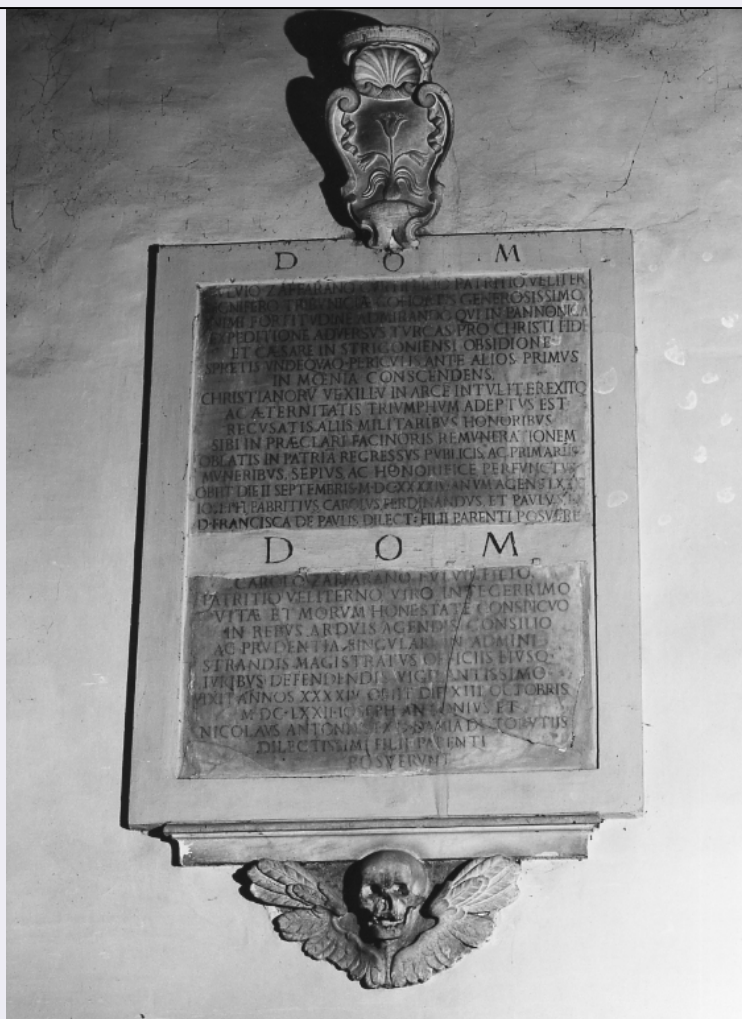 D O M
ZAFFARANO PATRITIO VELITER
SIGNIFERO TRIBVNICIÆ COHORTIS GENEROSISSIMO
ANIMI FORTITVDINE ADMIRANDO QVI IN PANNONICA
EXPEDITIONE ADVERSVS TVRCAS PRO CHRISTI FIDE
ET CÆSARE IN STRIGONIENSI OBSIDIONE
SPRETIS VNDEQVAQ PERICVLIS ANTE ALIOS PRIMVS
IN MŒNIA CONSCENDENS,
CHRISTIANORV VEXILLV IN ARCE INTVLIT EREXITQ
AC ÆTERNITATIS TRIVMPHVM ADEPTVS EST
RECVSATIS ALIIS MILITARIBVS HONORIBVS
SIBI IN PRÆCLARI FACINORIS REMVNERATIONEM
OBLATIS IN PATRIA REGRESSVS PVBLICIS AC PRIMARIIS
MVNERIBVS, SEPIVS, AC HONORIFICE PERFVNCTVS
OBIIT DIE II SEPTEMBRIS ANVM AGENS
FABRITIVS CAROLVS FERDINANDVS, ET PAVLVS
D FRANCISCA DE PAVLIS DILECT: FILII PARENTI POSVERE
D O M
CAROLO ZAFFARANO FVLVII FILIO
PATRITIO VELITERNO VIRO INTEGERRIMO
VITÆ ET MORVM HONESTATE CONSPICVO
IN REBVS ARDVIS AGENDIS CONSILIO
AC PRVDENTIA SINGVLARI IN ADMINI
STRANDIS MAGISTRATVS OFFICIIS EIVSQ
IVRIBVS DEFENDENDIS VIGILANTISSIMO
VIXIT ANNOS OBIIT DIE XIII OCTOBRIS
M DC LXXII IOSEPH ANTONIVS ET
NICOLAVS ANTONIVS DE TORVTIIS
DILECTISSIMI FILII PARENTI
POSVERVNT